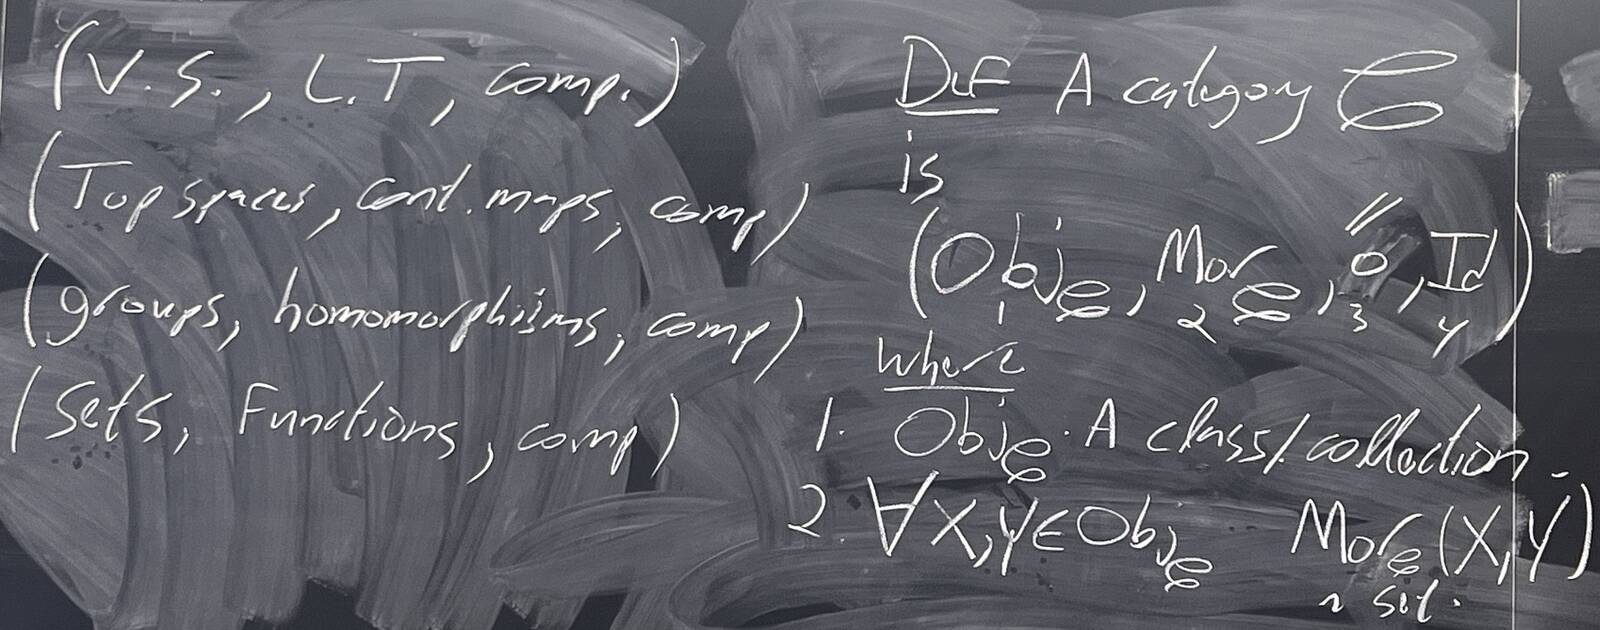 (V.S., L.T, comp.)
(Top spaces, cont. maps, comp)
(groups, homomorphisms, comp)
(Sets, Functions, comp)
Def A category C
is
(Obj_C, Mor_C, "∘, Id)
1 2 3 4
where
1. Obj_C. A class/collection.
2. ∀X,Y∈Obj_C Mor_C(X,Y)
a set.